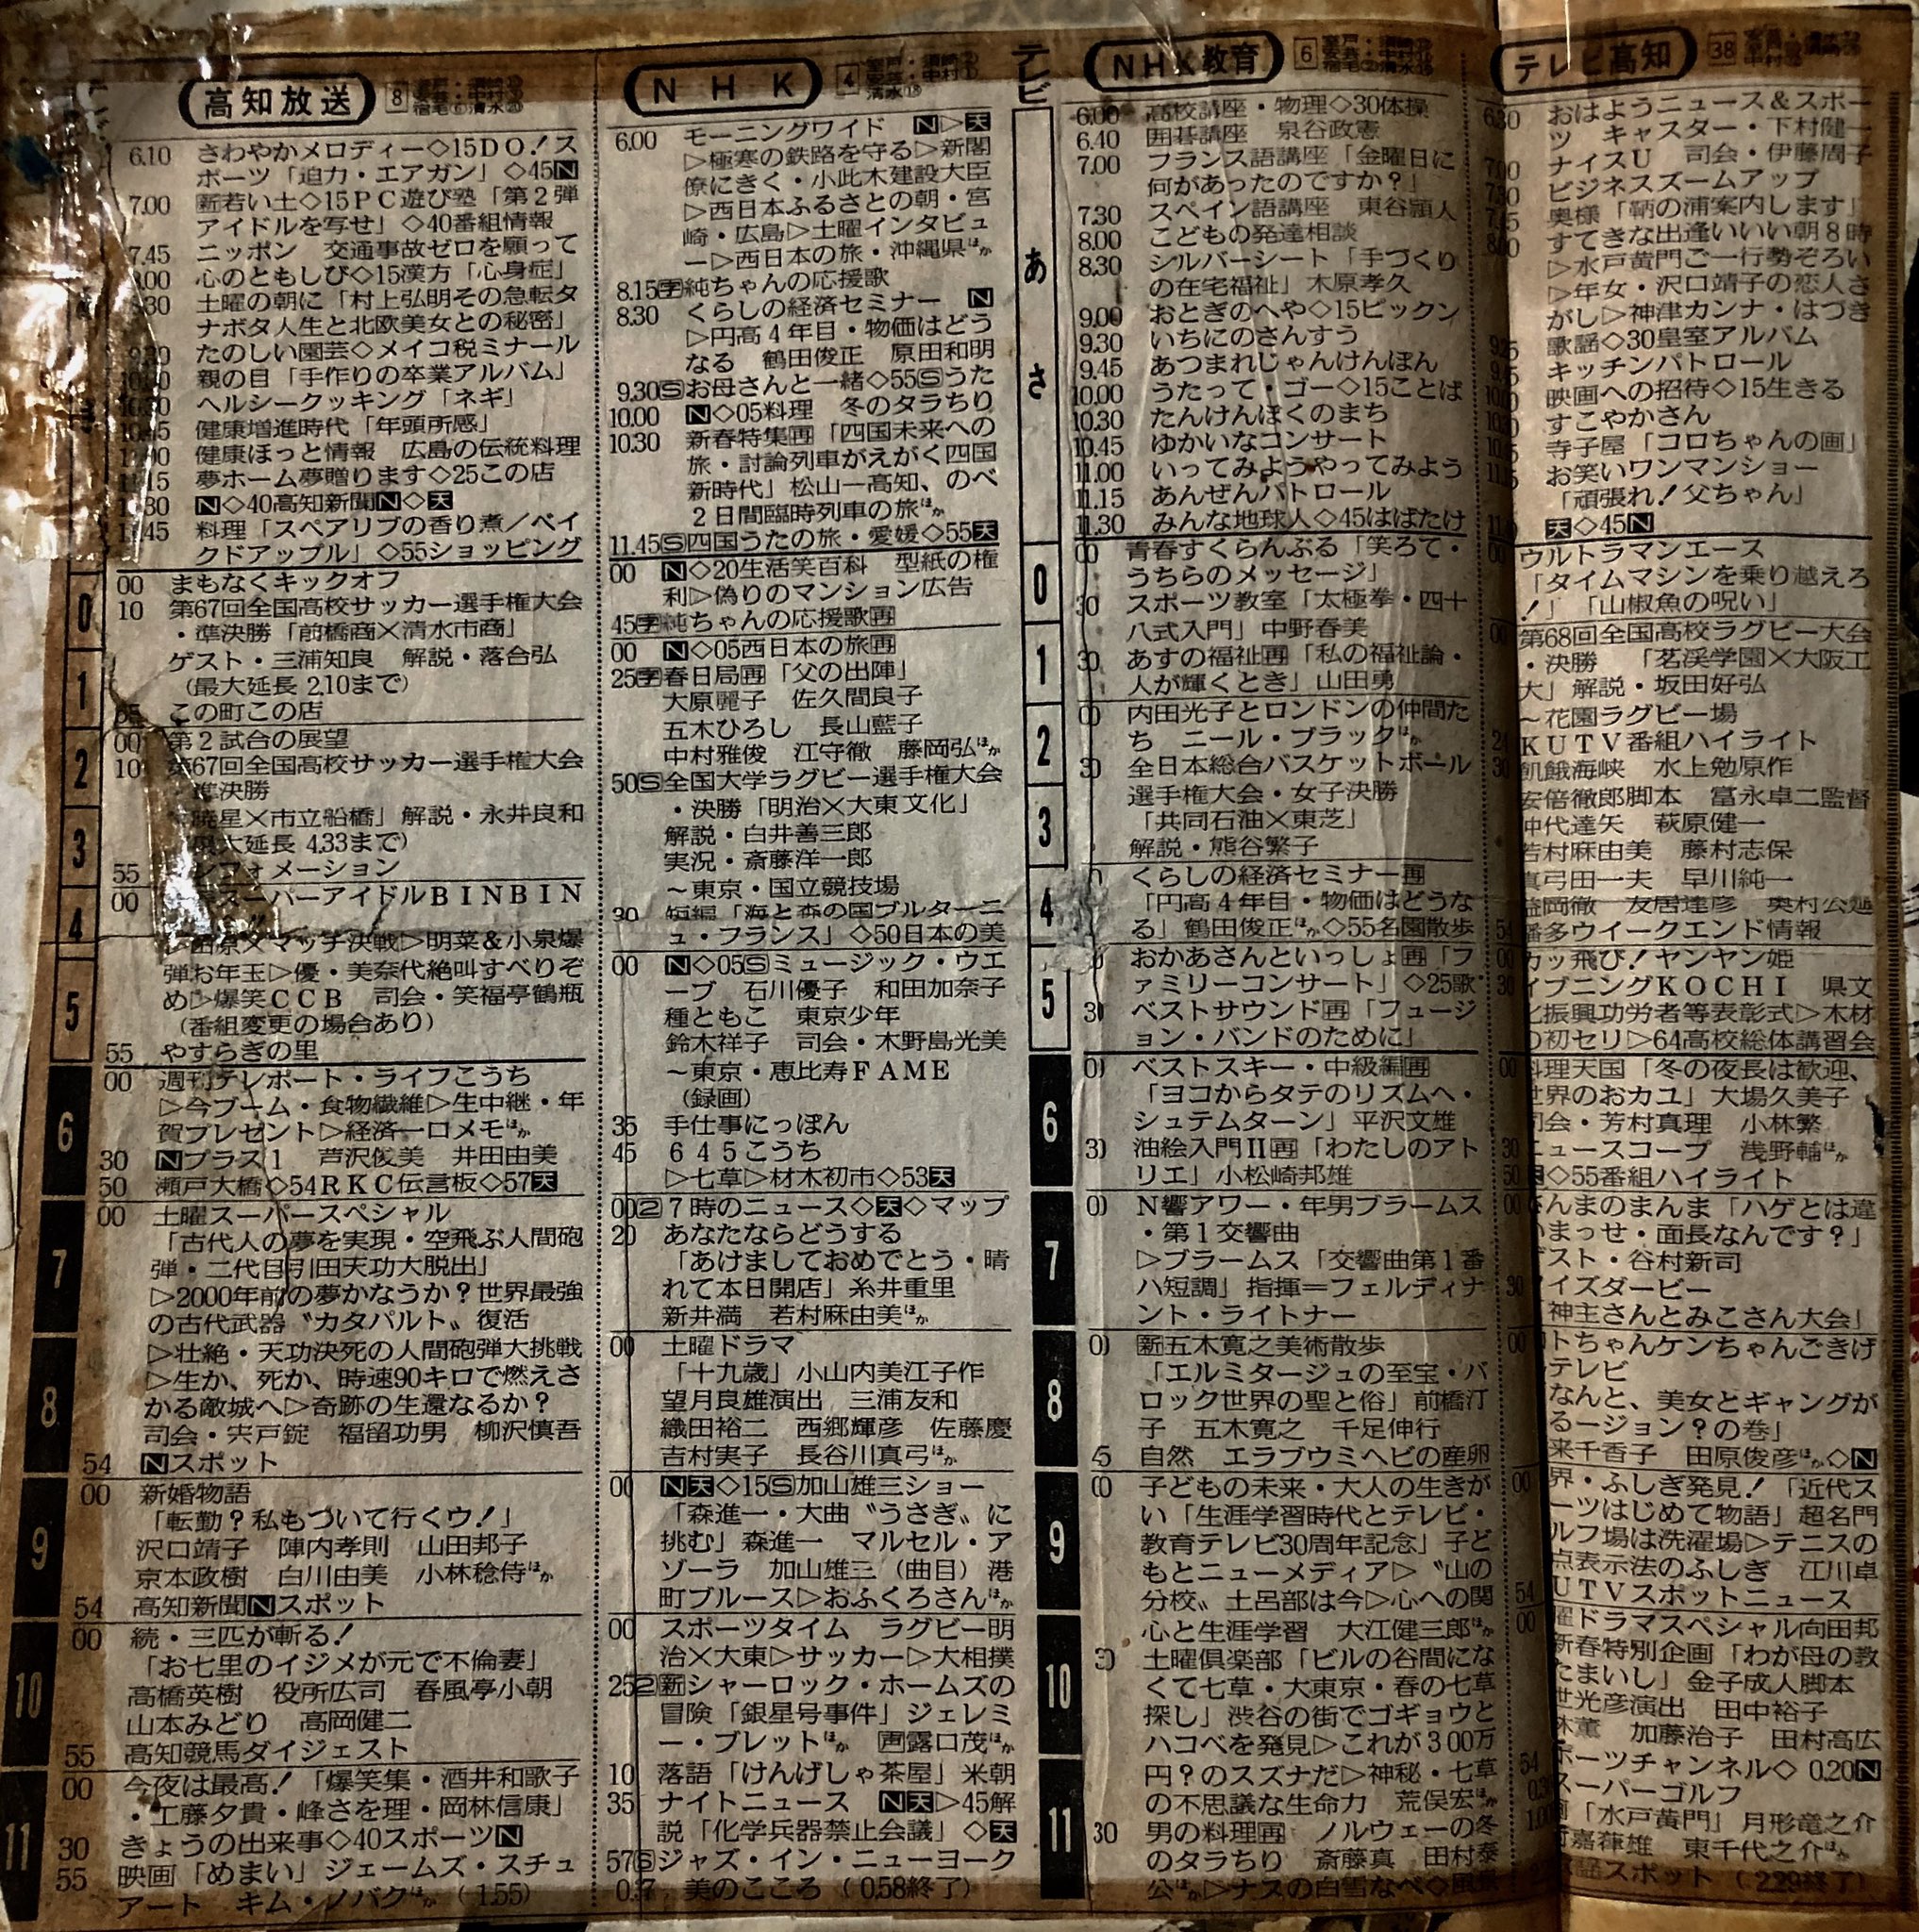 高知放送 8
6.10 さわやかメロディー◇15DO!ス
ポーツ「迫力・エアガン」◇45N
7.00 新若い土◇15PC遊び塾「第2弾
アイドルを写せ」◇40番組情報
7.45 ニッポン 交通事故ゼロを願って
8.00 心のともしび◇15漢方「心身症」
8.30 土曜の朝に「村上弘明その急転タ
ナボタ人生と北欧美女との秘密」
たのしい園芸◇メイコ税ミナール
親の目「手作りの卒業アルバム」
ヘルシークッキング「ネギ」
健康増進時代「年頭所感」
健康ほっと情報 広島の伝統料理
夢ホーム夢贈ります◇25この店
11.30 N◇40高知新聞N◇天
11.45 料理「スペアリブの香り煮/ベイ
クドアップル」◇55ショッピング
0
00 まもなくキックオフ
10 第67回全国高校サッカー選手権大会
・準決勝「前橋商×清水市商」
ゲスト・三浦知良 解説・落合弘
(最大延長 2.10まで)
1
この町この店
2
00 第2試合の展望
10 第67回全国高校サッカー選手権大会
準決勝
暁星×市立船橋」解説・永井良和
大延長 4.33まで)
3
55 フォメーション
4
00 スーパーアイドルBINBIN
▷田原×マッチ決戦▷明菜&小泉爆
弾お年玉▷優・美奈代絶叫すべりぞ
め▷爆笑CCB 司会・笑福亭鶴瓶
(番組変更の場合あり)
5
55 やすらぎの里
6
00 週刊テレポート・ライフこうち
▷今ブーム・食物繊維▷生中継・年
賀プレゼント▷経済一口メモほか
30 Nプラス1 芦沢俊美 井田由美
50 瀬戸大橋◇54RKC伝言板◇57天
7
00 土曜スーパースペシャル
「古代人の夢を実現・空飛ぶ人間砲
弾・二代目引田天功大脱出」
▷2000年前の夢かなうか?世界最強
の古代武器〝カタパルト〟復活
▷壮絶・天功決死の人間砲弾大挑戦
▷生か、死か、時速90キロで燃えさ
かる敵城へ▷奇跡の生還なるか?
8
司会・宍戸錠 福留功男 柳沢慎吾
54 Nスポット
9
00 新婚物語
「転勤?私もついて行くウ!」
沢口靖子 陣内孝則 山田邦子
京本政樹 白川由美 小林稔侍ほか
54 高知新聞Nスポット
10
00 続・三匹が斬る!
「お七里のイジメが元で不倫妻」
高橋英樹 役所広司 春風亭小朝
山本みどり 高岡健二
55 高知競馬ダイジェスト
11
00 今夜は最高!「爆笑集・酒井和歌子
・工藤夕貴・峰さを理・岡林信康」
30 きょうの出来事◇40スポーツN
55 映画「めまい」ジェームズ・スチュ
アート キム・ノバクほか (1.55)
NHK 4
6.00 モーニングワイド N▷天
▷極寒の鉄路を守る▷新閣
僚にきく・小此木建設大臣
▷西日本ふるさとの朝・宮
崎・広島▷土曜インタビュ
ー▷西日本の旅・沖縄県ほか
8.15字純ちゃんの応援歌
8.30 くらしの経済セミナー N
▷円高4年目・物価はどう
なる 鶴田俊正 原田和明
9.30Sお母さんと一緒◇55Sうた
10.00 N◇05料理 冬のタラちり
10.30 新春特集再「四国未来への
旅・討論列車がえがく四国
新時代」松山―高知、のべ
2日間臨時列車の旅ほか
11.45S四国うたの旅・愛媛◇55天
00 N◇20生活笑百科 型紙の権
利▷偽りのマンション広告
45字純ちゃんの応援歌再
00 N◇05西日本の旅再
25字春日局再「父の出陣」
大原麗子 佐久間良子
五木ひろし 長山藍子
中村雅俊 江守徹 藤岡弘ほか
50S全国大学ラグビー選手権大会
・決勝「明治×大東文化」
解説・白井善三郎
実況・斎藤洋一郎
~東京・国立競技場
30 短編「海と森の国ブルターニ
ュ・フランス」◇50日本の美
00 N◇05Sミュージック・ウエ
ーブ 石川優子 和田加奈子
種ともこ 東京少年
鈴木祥子 司会・木野島光美
~東京・恵比寿FAME
(録画)
35 手仕事にっぽん
45 645こうち
▷七草▷材木初市◇53天
00 2 7時のニュース◇天◇マップ
20 あなたならどうする
「あけましておめでとう・晴
れて本日開店」糸井重里
新井満 若村麻由美ほか
00 土曜ドラマ
「十九歳」小山内美江子作
望月良雄演出 三浦友和
織田裕二 西郷輝彦 佐藤慶
吉村実子 長谷川真弓ほか
00 N天◇15S加山雄三ショー
「森進一・大曲〝うさぎ〟に
挑む」森進一 マルセル・ア
ゾーラ 加山雄三(曲目)港
町ブルース▷おふくろさんほか
00 スポーツタイム ラグビー明
治×大東▷サッカー▷大相撲
25 2新シャーロック・ホームズの
冒険「銀星号事件」ジェレミ
ー・ブレットほか 声露口茂ほか
10 落語「けんげしゃ茶屋」米朝
35 ナイトニュース N天▷45解
説「化学兵器禁止会議」◇天
57Sジャズ・イン・ニューヨーク
美のこころ (0.58終了)
テレビ
あさ
0
1
2
3
4
5
6
7
8
9
10
11
NHK教育 6
6.00 高校講座・物理◇30体操
6.40 囲碁講座 泉谷政憲
7.00 フランス語講座「金曜日に
何があったのですか?」
7.30 スペイン語講座 東谷頴人
8.00 こどもの発達相談
8.30 シルバーシート「手づくり
の在宅福祉」木原孝久
9.00 おとぎのへや◇15ピックン
9.30 いちにのさんすう
9.45 あつまれじゃんけんぽん
10.00 うたって・ゴー◇15ことば
10.30 たんけんぼくのまち
10.45 ゆかいなコンサート
11.00 いってみようやってみよう
11.15 あんぜんパトロール
11.30 みんな地球人◇45はばたけ
00 青春すくらんぶる「笑ろて・
うちらのメッセージ」
30 スポーツ教室「太極拳・四十
八式入門」中野春美
30 あすの福祉再「私の福祉論・
人が輝くとき」山田勇
00 内田光子とロンドンの仲間た
ち ニール・ブラックほか
30 全日本総合バスケットボール
選手権大会・女子決勝
「共同石油×東芝」
解説・熊谷繁子
くらしの経済セミナー再
「円高4年目・物価はどうな
る」鶴田俊正ほか◇55名園散歩
おかあさんといっしょ再「フ
ァミリーコンサート」◇25歌
30 ベストサウンド再「フュージ
ョン・バンドのために」
00 ベストスキー・中級編再
「ヨコからタテのリズムへ・
シュテムターン」平沢文雄
30 油絵入門Ⅱ再「わたしのアト
リエ」小松崎邦雄
00 N響アワー・年男ブラームス
・第1交響曲
▷ブラームス「交響曲第1番
ハ短調」指揮=フェルディナ
ント・ライトナー
00 新五木寛之美術散歩
「エルミタージュの至宝・バ
ロック世界の聖と俗」前橋汀
子 五木寛之 千足伸行
45 自然 エラブウミヘビの産卵
00 子どもの未来・大人の生きが
い「生涯学習時代とテレビ・
教育テレビ30周年記念」子ど
もとニューメディア▷〝山の
分校〟土呂部は今▷心への関
心と生涯学習 大江健三郎ほか
30 土曜倶楽部「ビルの谷間にな
くて七草・大東京・春の七草
探し」渋谷の街でゴギョウと
ハコベを発見▷これが300万
円?のスズナだ▷神秘・七草
の不思議な生命力 荒俣宏ほか
30 男の料理再 ノルウェーの冬
のタラちり 斎藤真 田村泰
公ほか▷ナスの白雪なべ◇風景
テレビ高知 38
6.30 おはようニュース&スポー
ツ キャスター・下村健一
7.00 ナイスU 司会・伊藤周子
7.30 ビジネスズームアップ
7.45 奥様「鞆の浦案内します」
8.00 すてきな出逢いいい朝8時
▷水戸黄門ご一行勢ぞろい
▷年女・沢口靖子の恋人さ
がし▷神津カンナ・はづき
歌謡◇30皇室アルバム
キッチンパトロール
映画への招待◇15生きる
すこやかさん
寺子屋「コロちゃんの画」
お笑いワンマンショー
「頑張れ!父ちゃん」
天◇45N
00 ウルトラマンエース
「タイムマシンを乗り越えろ
!」「山椒魚の呪い」
00 第68回全国高校ラグビー大会
・決勝 「茗渓学園×大阪工
大」解説・坂田好弘
~花園ラグビー場
KUTV番組ハイライト
30 飢餓海峡 水上勉原作
安倍徹郎脚本 富永卓二監督
仲代達矢 萩原健一
若村麻由美 藤村志保
真弓田一夫 早川純一
益岡徹 友居達彦 奥村公延
54 幡多ウイークエンド情報
00 カッ飛び!ヤンヤン姫
30 イブニングKOCHI 県文
化振興功労者等表彰式▷木材
の初セリ▷64高校総体講習会
00 料理天国「冬の夜長は歓迎、
世界のおカユ」大場久美子
司会・芳村真理 小林繁
30 ニュースコープ 浅野輔ほか
50 天◇55番組ハイライト
00 さんまのまんま「ハゲとは違
いまっせ・面長なんです?」
ゲスト・谷村新司
30 クイズダービー
「神主さんとみこさん大会」
00 カトちゃんケンちゃんごきげ
テレビ
なんと、美女とギャングが
るージョン?の巻」
来千香子 田原俊彦ほか◇N
00 界・ふしぎ発見!「近代ス
ーツはじめて物語」超名門
ルフ場は洗濯場▷テニスの
点表示法のふしぎ 江川卓
54 UTVスポットニュース
00 曜ドラマスペシャル向田邦
新春特別企画「わが母の教
たまいし」金子成人脚本
世光彦演出 田中裕子
林薫 加藤治子 田村高広
54 ポーツチャンネル◇ 0.20N
スーパーゴルフ
「水戸黄門」月形竜之介
東千代之介ほか
スポット (2.29終了)